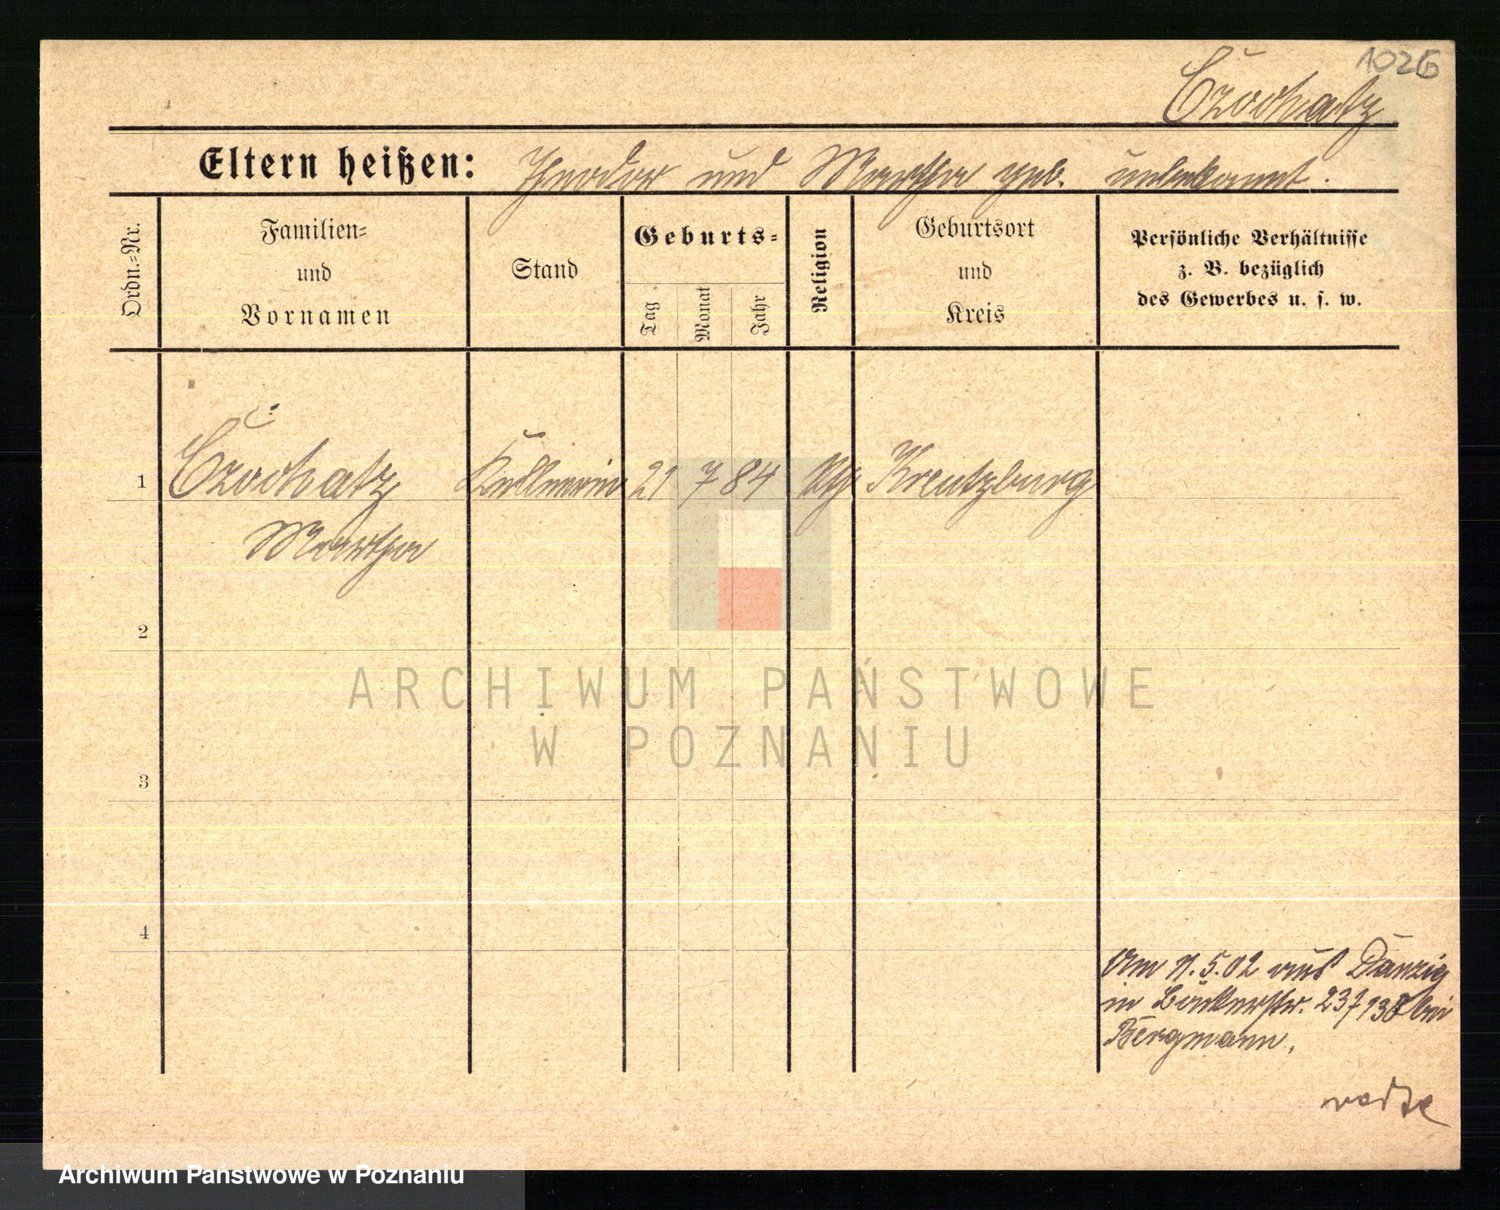 1026
Czochatz
Eltern heißen: Theodor und Martha geb. unbekannt.
Ordn.-Nr.
Familien-
und
Vornamen
Stand
Geburts-
Tag
Monat
Jahr
Religion
Geburtsort
und
Kreis
Persönliche Verhältnisse
z. B. bezüglich
des Gewerbes u. s. w.
1 Czochatz Kellnerin 21 7 84 Kreutzburg
Martha
2
ARCHIWUM PAŃSTWOWE
W POZNANIU
3
4
Am 5.02 aus Danzig
in Bäckerstr. bei
Bergmann.
Archiwum Państwowe w Poznaniu